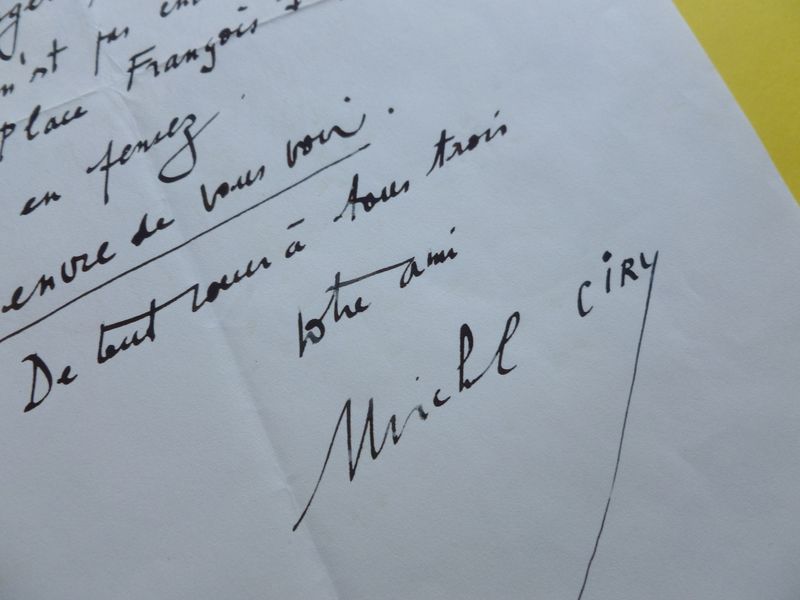 n'est pas en
Place François 1
en fermez.
envie de vous voir.
De tout coeur à tous trois
Votre ami
Michel CIRY